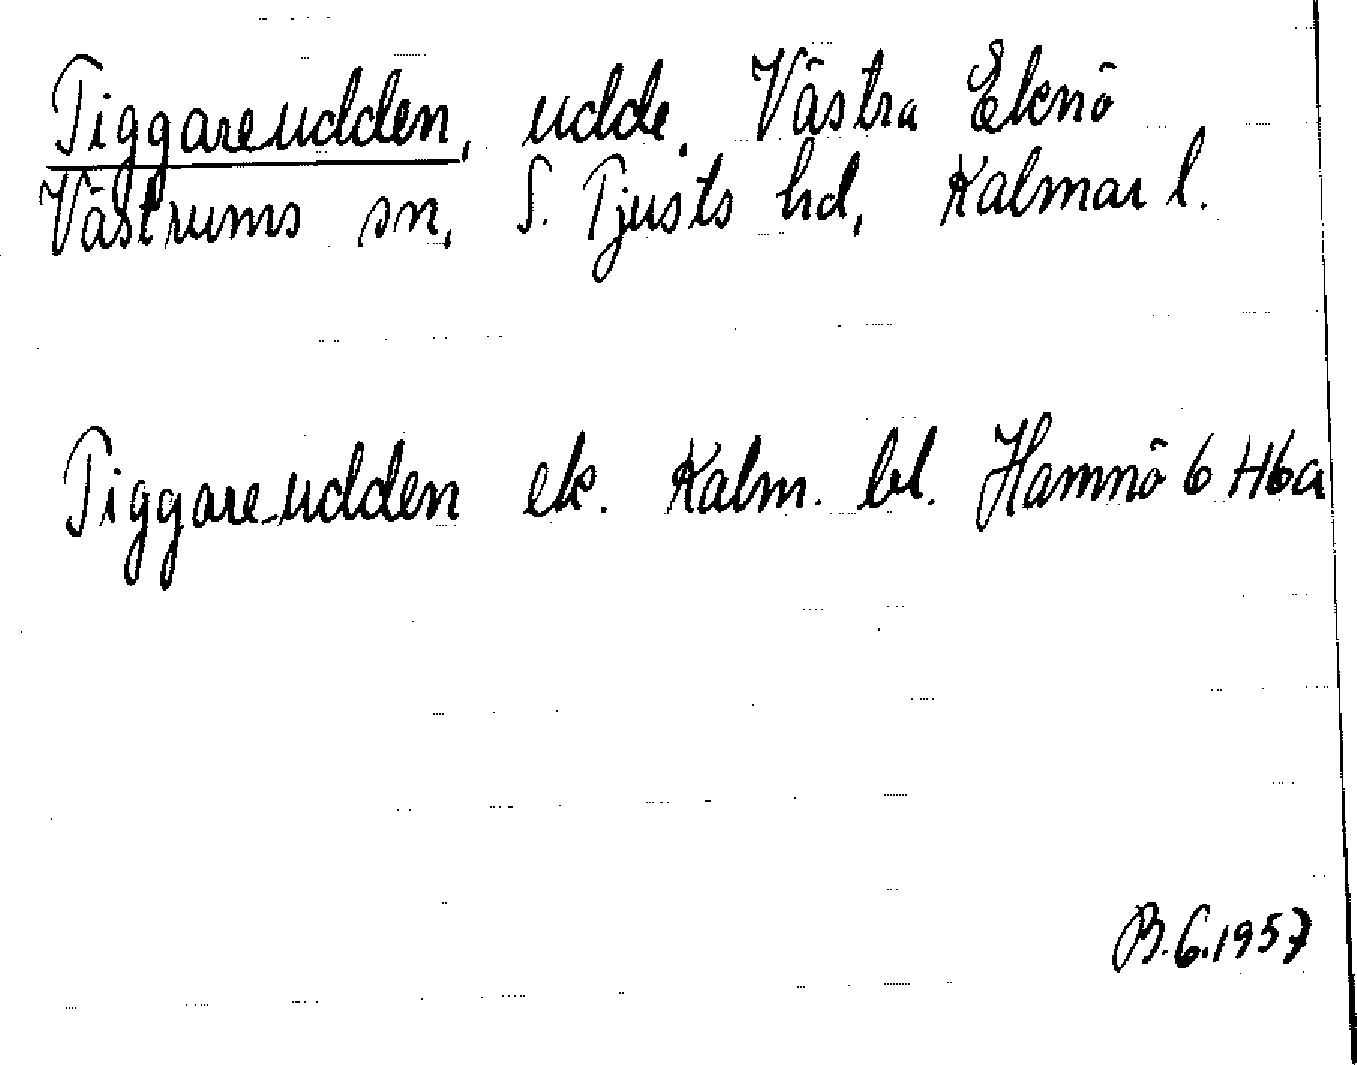 Tiggareudden, udde. Västra Eknö
Västrums sn, S. Tjusts hd, Kalmar l.
Tiggareudden ek. Kalm. bl. Hamnö 6 H6a
B.G.1957